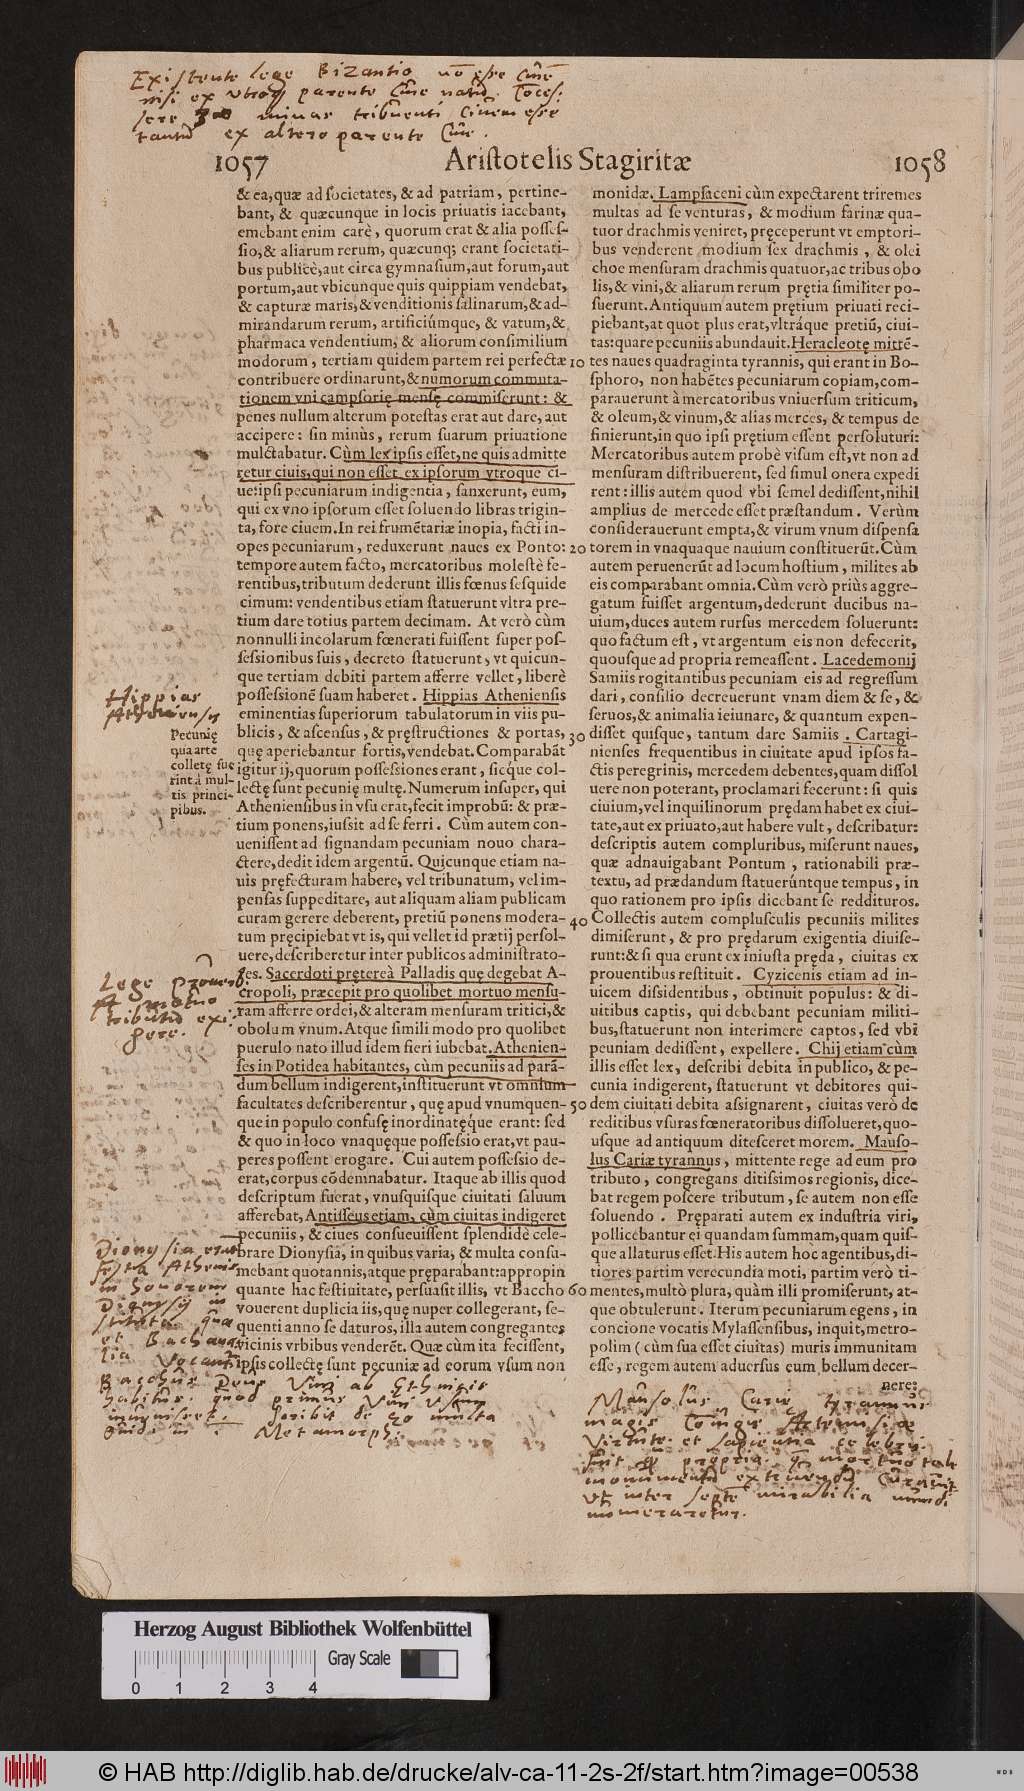 Existente lege Bizantio nō esse Ciuē
nisi ex vtroq; parente Ciue natū. Cōces-
sere 30 minas tribuenti Ciuem esse
tantū ex altero parente Ciue.
1057 Aristotelis Stagiritæ 1058
& ea, quæ ad societates, & ad patriam, pertine-
bant, & quæcunque in locis priuatis iacebant,
emebant enim carè, quorum erat & alia posses-
sio, & aliarum rerum, quæcunq; erant societati-
bus publicè, aut circa gymnasium, aut forum, aut
portum, aut vbicunque quis quippiam vendebat,
& capturæ maris, & venditionis salinarum, & ad-
mirandarum rerum, artificiúmque, & vatum, &
pharmaca vendentium, & aliorum consimilium
modorum, tertiam quidem partem rei perfectæ 10
contribuere ordinarunt, & numorum commuta-
tionem vni campsorię mensę commiserunt: &
penes nullum alterum potestas erat aut dare, aut
accipere: sin minùs, rerum suarum priuatione
mulctabatur. Cùm lex ipsis esset, ne quis admitte
retur ciuis, qui non esset ex ipsorum vtroque ci-
ue: ipsi pecuniarum indigentia, sanxerunt, eum,
qui ex vno ipsorum esset soluendo libras trigin-
ta, fore ciuem. In rei frumētariæ inopia, facti in-
opes pecuniarum, reduxerunt naues ex Ponto: 20
tempore autem facto, mercatoribus molestè fe-
rentibus, tributum dederunt illis fœnus sesquide
cimum: vendentibus etiam statuerunt vltra pre-
tium dare totius partem decimam. At verò cùm
nonnulli incolarum fœnerati fuissent super pos-
sessionibus suis, decreto statuerunt, vt quicun-
que tertiam debiti partem afferre vellet, liberè
possessionē suam haberet. Hippias Atheniensis
eminentias superiorum tabulatorum in viis pu-
blicis, & ascensus, & pręstructiones & portas, 30
quę aperiebantur fortis, vendebat. Comparabāt
igitur ij, quorum possessiones erant, sicque col-
lectę sunt pecunię multę. Numerum insuper, qui
Atheniensibus in vsu erat, fecit improbū: & præ-
tium ponens, iussit ad se ferri. Cùm autem con-
uenissent ad signandam pecuniam nouo chara-
ctere, dedit idem argentū. Quicunque etiam na-
uis pręfecturam habere, vel tribunatum, vel im-
pensas suppeditare, aut aliquam aliam publicam
curam gerere deberent, pretiū ponens modera- 40
tum pręcipiebat vt is, qui vellet id prætij persol-
uere, describeretur inter publicos administrato-
res. Sacerdoti pręterea Palladis quę degebat A-
cropoli, præcepit pro quolibet mortuo mensu-
ram afferre ordei, & alteram mensuram tritici, &
obolum vnum. Atque simili modo pro quolibet
puerulo nato illud idem fieri iubebat. Athenien-
ses in Potidea habitantes, cùm pecuniis ad parā-
dum bellum indigerent, instituerunt vt omnium
facultates describerentur, quę apud vnumquen- 50
que in populo confusę inordinatęque erant: sed
& quo in loco vnaquęque possessio erat, vt pau-
peres possent erogare. Cui autem possessio de-
erat, corpus cōdemnabatur. Itaque ab illis quod
descriptum fuerat, vnusquisque ciuitati saluum
afferebat, Antisseus etiam, cùm ciuitas indigeret
pecuniis, & ciues consueuissent splendidè cele-
brare Dionysia, in quibus varia, & multa consu-
mebant quotannis, atque pręparabant: appropin
quante hac festiuitate, persuasit illis, vt Baccho 60
vouerent duplicia iis, quę nuper collegerant, se-
quenti anno se daturos, illa autem congregantes
vicinis vrbibus venderēt. Quæ cùm ita fecissent,
ipsis collectę sunt pecuniæ ad eorum vsum non
Hippias
Atheniensis
Pecunię
qua arte
colletę fue
rint à mul-
tis princi-
pibus.
Lege
mortuo
tributū exi-
gere.
Dionysia erāt
festa Athenis
in honorem
Dionysij in
stituta, quæ
et Bachana
lia vocantur
Bacchus Deus Vini ab Ethnicis
habitus, quod primus Vini Vsum
inuenisset. Scribit de eo multa
Ouid: in : Metamorph:
monidæ. Lampsaceni cùm expectarent triremes
multas ad se venturas, & modium farinæ qua-
tuor drachmis veniret, pręceperunt vt emptori-
bus venderent modium sex drachmis, & olei
choe mensuram drachmis quatuor, ac tribus obo
lis, & vini, & aliarum rerum prętia similiter po-
suerunt. Antiquum autem prętium priuati reci-
piebant, at quot plus erat, vltráque pretiū, ciui-
tas: quare pecuniis abundauit. Heracleotę mittē-
tes naues quadraginta tyrannis, qui erant in Bo-
sphoro, non habētes pecuniarum copiam, com-
parauerunt à mercatoribus vniuersum triticum,
& oleum, & vinum, & alias merces, & tempus de
finierunt, in quo ipsi prętium essent persoluturi:
Mercatoribus autem probè visum est, vt non ad
mensuram distribuerent, sed simul onera expedi
rent: illis autem quod vbi semel dedissent, nihil
amplius de mercede esset præstandum. Verùm
considerauerunt empta, & virum vnum dispensa
torem in vnaquaque nauium constituerūt. Cùm
autem peruenerūt ad locum hostium, milites ab
eis comparabant omnia. Cùm verò priùs aggre-
gatum fuisset argentum, dederunt ducibus na-
uium, duces autem rursus mercedem soluerunt:
quo factum est, vt argentum eis non defecerit,
quousque ad propria remeassent. Lacedemonij
Samiis rogitantibus pecuniam eis ad regressum
dari, consilio decreuerunt vnam diem & se, &
seruos, & animalia ieiunare, & quantum expen-
disset quisque, tantum dare Samiis. Cartagi-
nienses frequentibus in ciuitate apud ipsos fa-
ctis peregrinis, mercedem debentes, quam dissol
uere non poterant, proclamari fecerunt: si quis
ciuium, vel inquilinorum prędam habet ex ciui-
tate, aut ex priuato, aut habere vult, describatur:
descriptis autem compluribus, miserunt naues,
quæ adnauigabant Pontum, rationabili præ-
textu, ad prædandum statuerúntque tempus, in
quo rationem pro ipsis dicebant se reddituros.
Collectis autem complusculis pecuniis milites
dimiserunt, & pro prędarum exigentia diuise-
runt: & si qua erunt ex iniusta pręda, ciuitas ex
prouentibus restituit. Cyzicenis etiam ad in-
uicem dissidentibus, obtinuit populus: & di-
uitibus captis, qui debebant pecuniam militi-
bus, statuerunt non interimere captos, sed vbi
peuniam dedissent, expellere. Chij etiam cùm
illis esset lex, describi debita in publico, & pe-
cunia indigerent, statuerunt vt debitores qui-
dem ciuitati debita assignarent, ciuitas verò de
reditibus vsuras fœneratoribus dissolueret, quo-
usque ad antiquum ditesceret morem. Mauso-
lus Cariæ tyrannus, mittente rege ad eum pro
tributo, congregans ditissimos regionis, dice-
bat regem poscere tributum, se autem non esse
soluendo. Pręparati autem ex industria viri,
pollicebantur ei quandam summam, quam quis-
que allaturus esset. His autem hoc agentibus, di-
tiores partim verecundia moti, partim verò ti-
mentes, multò plura, quàm illi promiserunt, at-
que obtulerunt. Iterum pecuniarum egens, in
concione vocatis Mylassensibus, inquit, metro-
polim (cùm sua esset ciuitas) muris immunitam
esse, regem autem aduersus eum bellum decer-
nere:
Mausolus Carie tyrannus
magis Coniugis Artemisiæ
virtute et sapientia celebris
fuit propria. mortuo tale
monumentū extruendū Curauit
vt inter septē mirabilia mundi
numeraretur.
Herzog August Bibliothek Wolfenbüttel
Gray Scale
0 1 2 3 4
© HAB http://diglib.hab.de/drucke/alv-ca-11-2s-2f/start.htm?image=00538